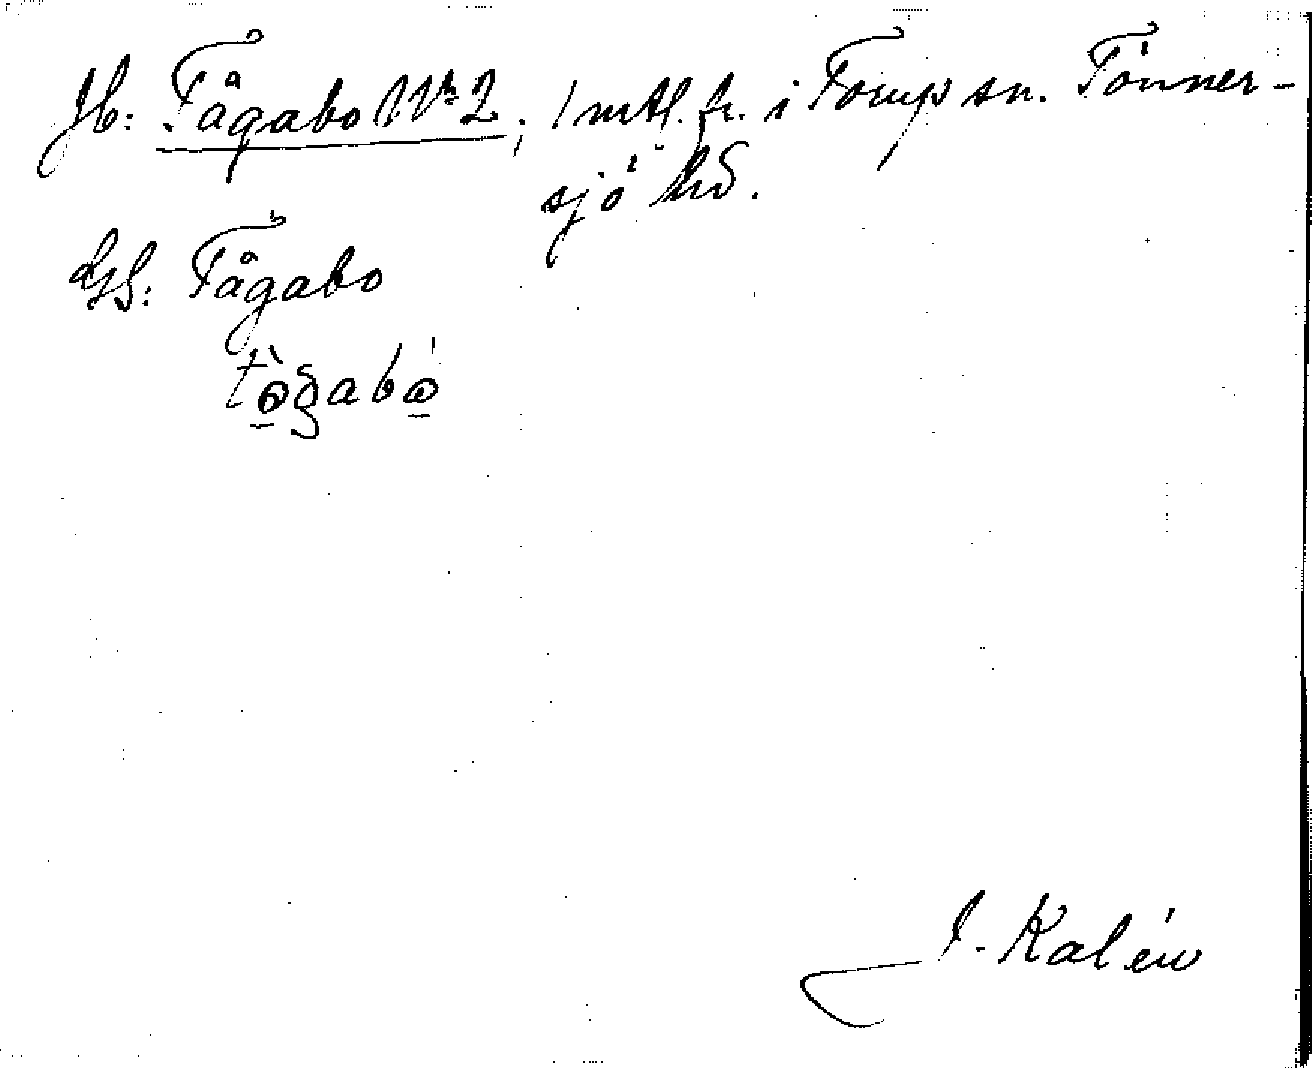 Jb: Tågabo Nr 2; 1 mtl. fr. i Torup sn. Tönner-
sjö hd.
GS: Tågabo
tògabó
J. Kalén